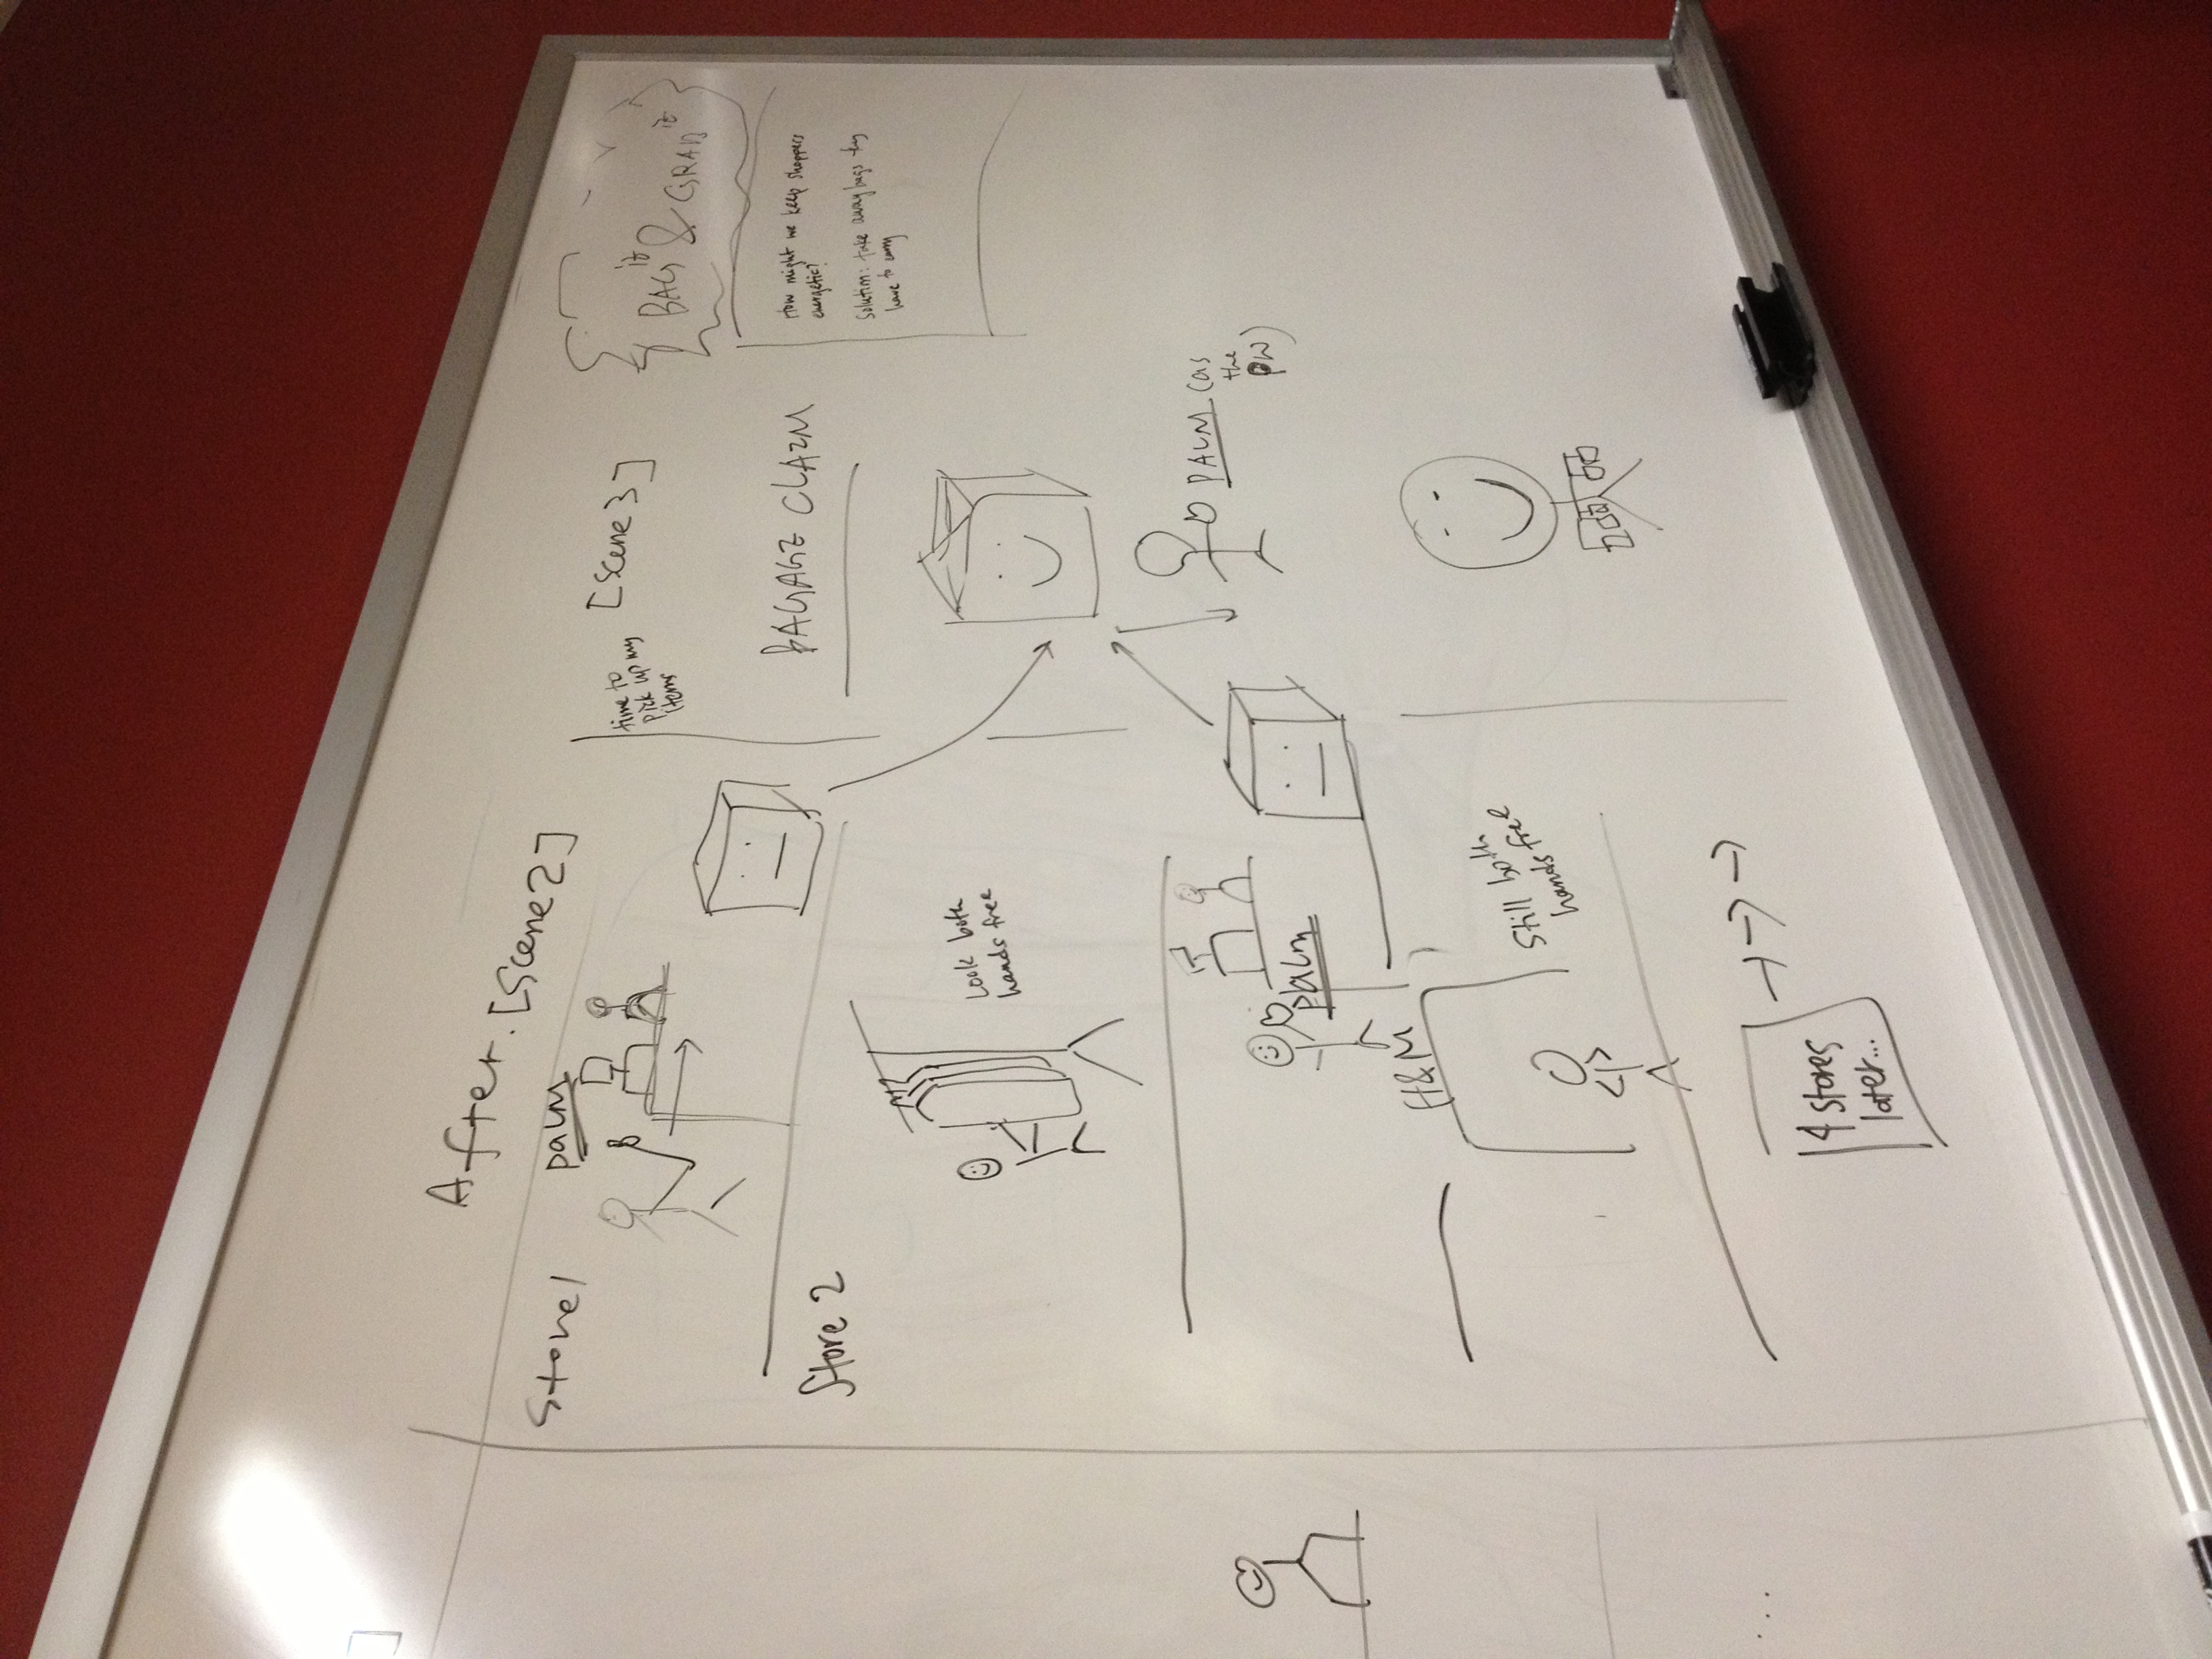 After. [Scene 2]
Store 1
palm
Store 2
Look both
hands free
palm
H&M
Still both
hands free
4 stores
later...
time to
pick up my
items
[Scene 3]
BAGAGE CLAIM
PALM (as
the
PW)
BAG it & GRAB it
How might we keep shoppers
energetic?
Solution: take away bags they
have to carry